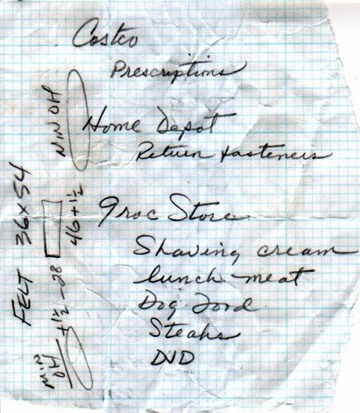 Costco
Prescriptions
Home Depot
Return fasteners
Groc Store
Shaving cream
lunch meat
Dog Food
Steaks
DVD
FELT 36x54
46+1½
+1½-28
MIN OH